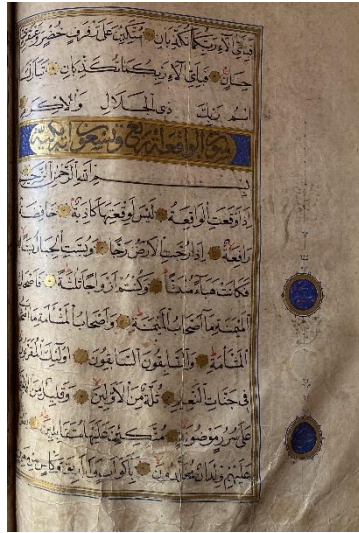 فبأي آلاء ربكما تكذبان متكئين على رفرف خضر وعبقري
حسان فبأي آلاء ربكما تكذبان تبارك
اسم ربك ذي الجلال والإكرام
سورة الواقعة تسع وتسعون آية مكية
بسم الله الرحمن الرحيم
إذا وقعت الواقعة ليس لوقعتها كاذبة خافضة
رافعة إذا رجت الأرض رجا وبست الجبال بسا
فكانت هباء منبثا وكنتم أزواجا ثلثة فأصحاب
الميمنة ما أصحاب الميمنة وأصحاب المشأمة ما أصحاب
المشأمة والسابقون السابقون أولئك المقربون
في جنات النعيم ثلة من الأولين وقليل من
على سرر موضونة متكئين عليها متقابلين
عليهم ولدان مخلدون بأكواب وأباريق وكأس من معين